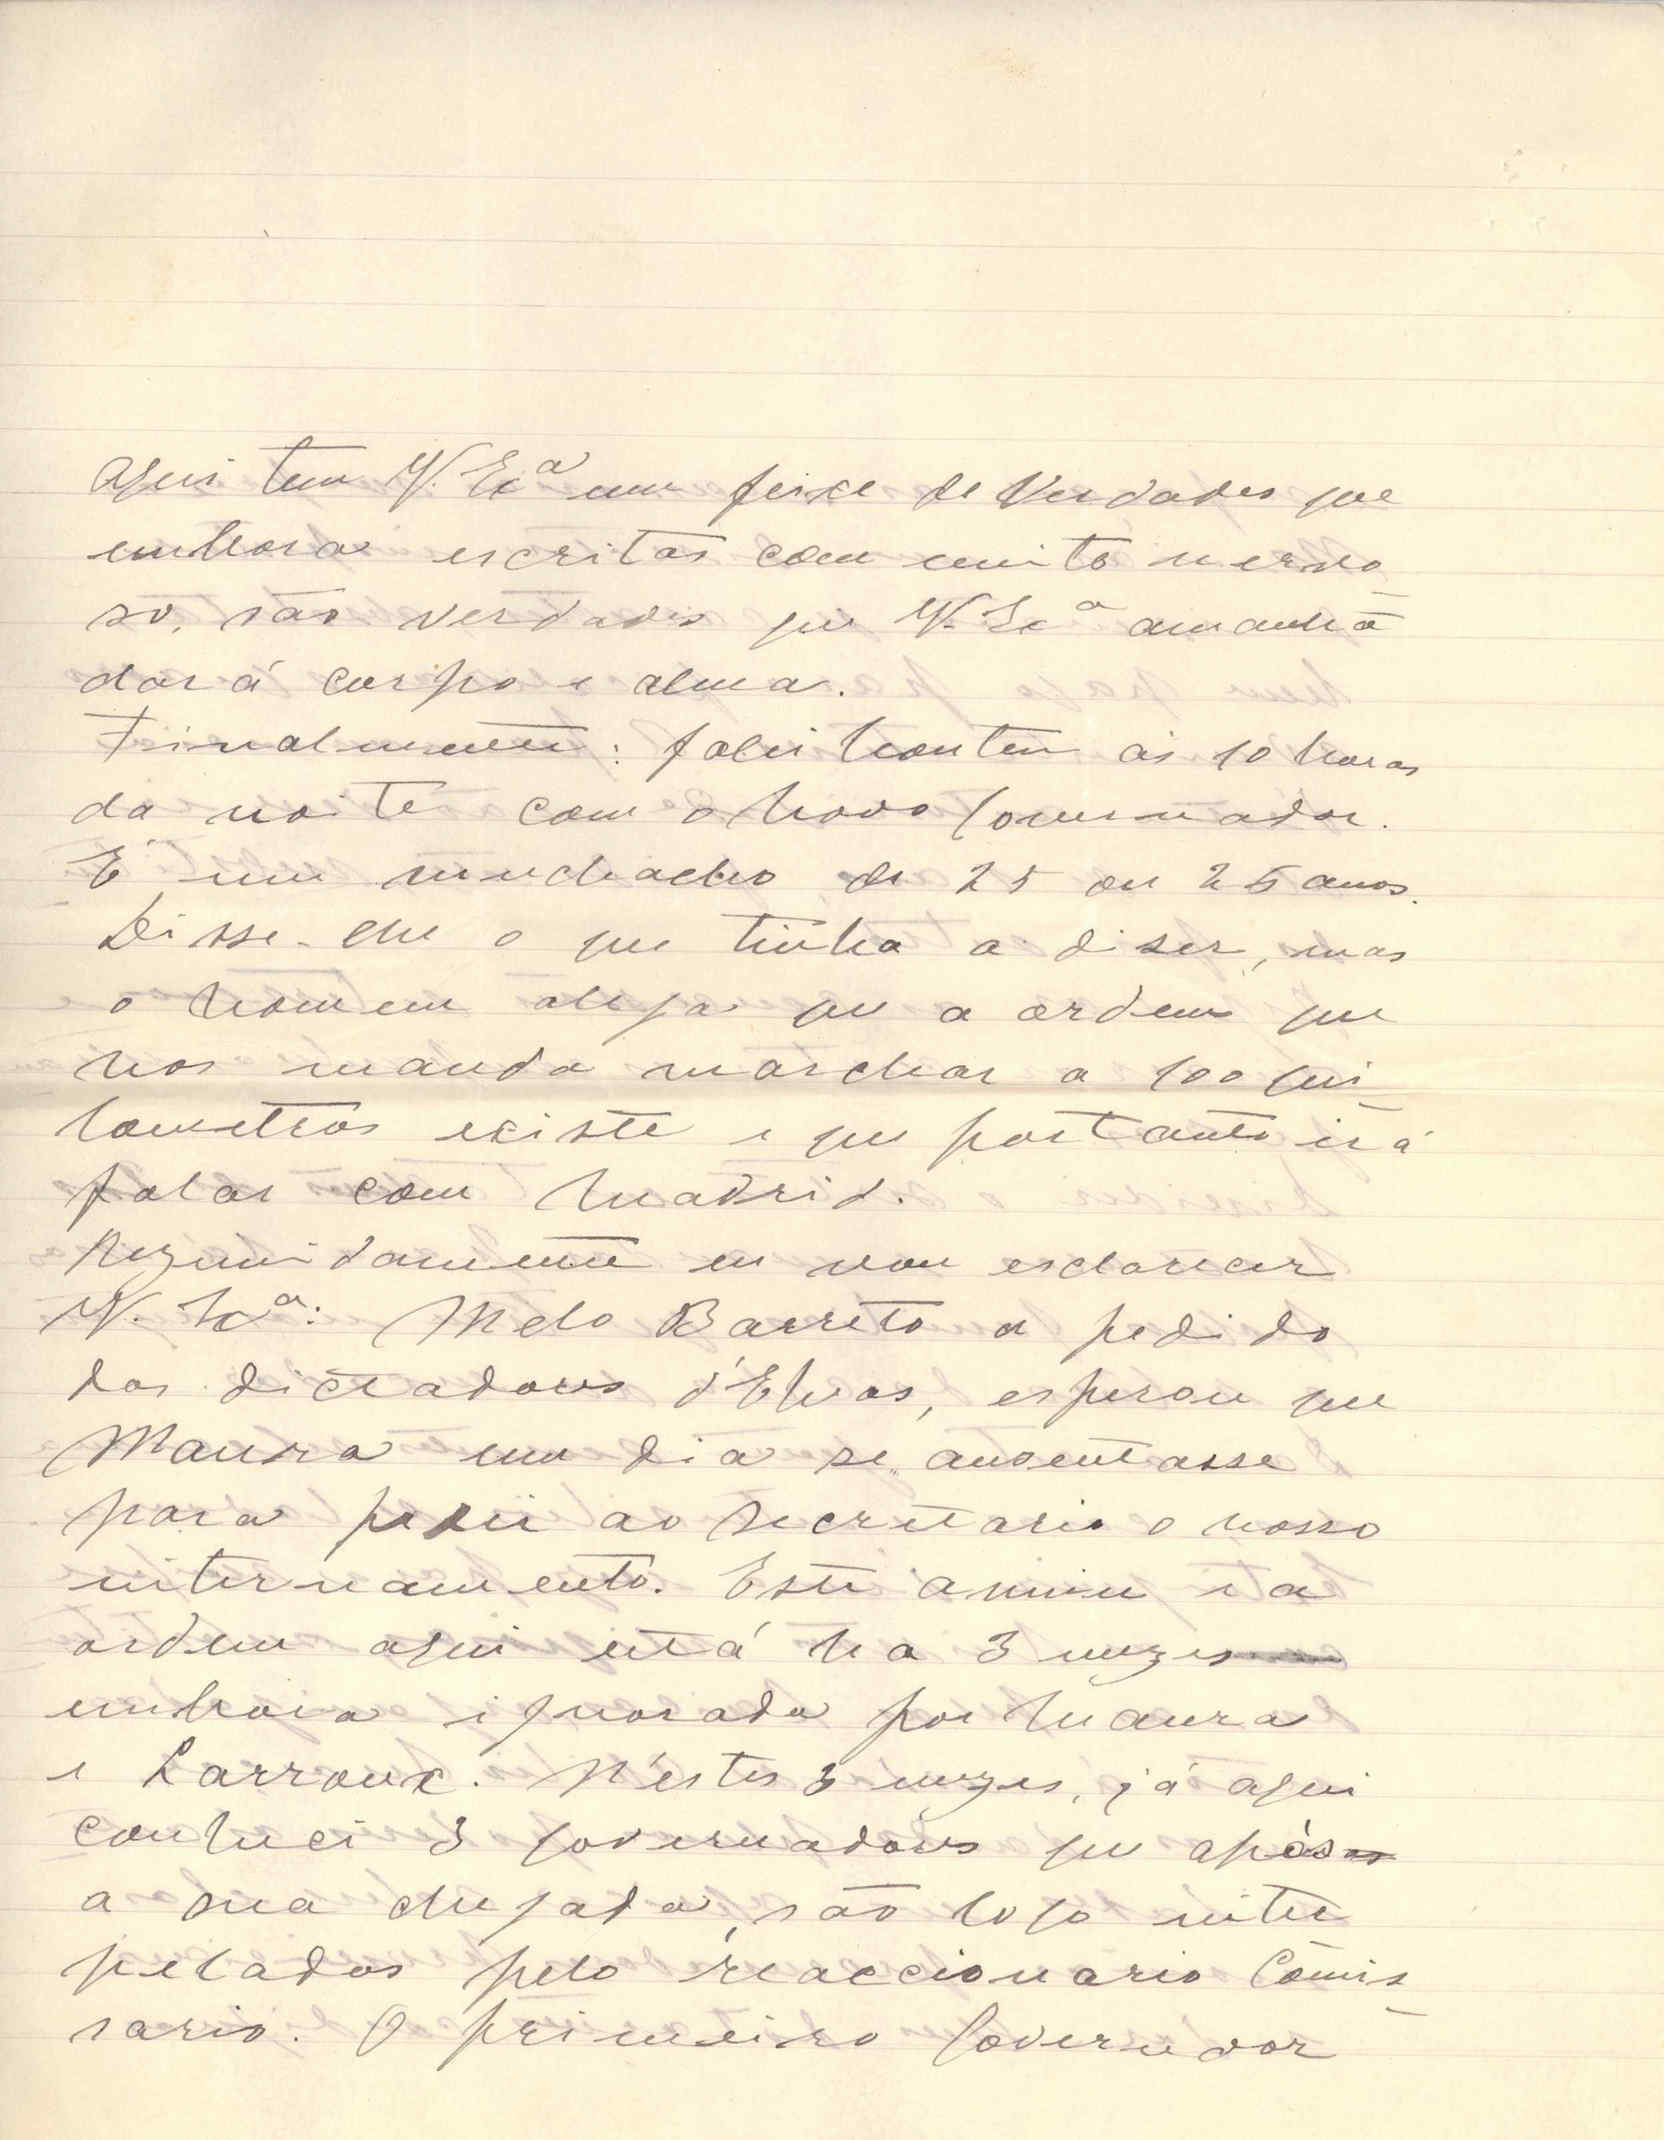 Aqui tem V. Exª um feixe de Verdades que
embora escritas com muito nervo
so, são verdades que V. Exª amanhã
dará corpo e alma.
Finalmente: falei hontem ás 10 horas
da noite com o novo Governador.
É um muchacho de 25 ou 26 anos.
Disse-lhe o que tinha a diser, mas
o homem alega que a ordem que
nos manda marchar a 100 qui
lometros existe e que portanto irá
falar com Madrid.
Rezumidamente eu vou esclarecer
V. Exª: Melo Barreto a pedido
dos dictadores d'Elvas, esperou que
Maura um dia se ausentasse
para pedir ao secretario o nosso
internamento. Este anuiu e a
ordem aqui está ha 3 mezes
embora ignorada por Maura
e Larroux. N'estes 3 mezes, já aqui
conheci 3 governadores que após
a sua chegada, são logo inter
pelados pelo reaccionário Comis
sario. O primeiro Governador